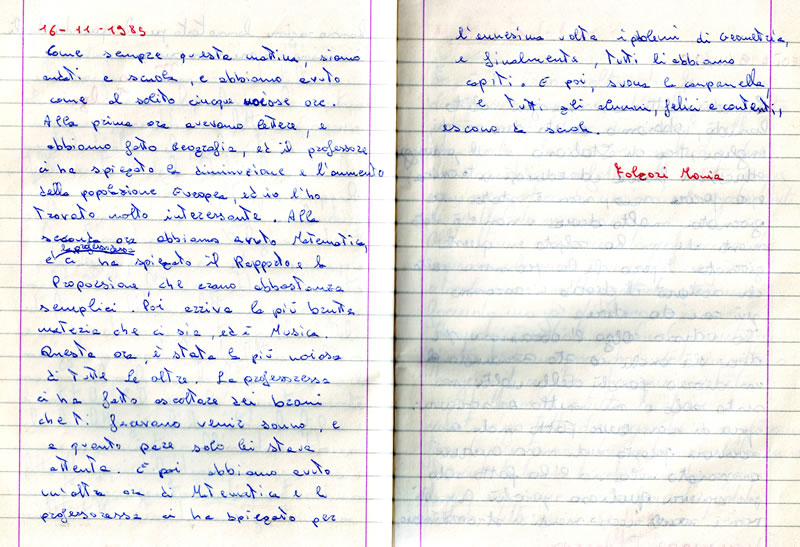 16-11-1985
Come sempre questa mattina, siamo
andati a scuola, e abbiamo avuto
come al solito cinque noiose ore.
Alla prima ora avevamo lettere, e
abbiamo fatto Geografia, ed il professore
ci ha spiegato la diminuzione e l'aumento
della popolazione Europea, ed io l'ho
trovato molto interessante. Alla
seconda ora abbiamo avuto Matematica,
la professoressa
e ci ha spiegato il Rapporto e la
Proporzione, che erano abbastanza
semplici. Poi arriva la più brutta
materia che ci sia, ed è Musica.
Questa ora, è stata la più noiosa
di tutte le altre. La professoressa
ci ha fatto ascoltare sei brani
che ti facevano venir sonno, e
a quanto pare solo lei stava
attenta. E poi abbiamo avuto
un'altra ora di Matematica e la
professoressa ci ha spiegato per
l'ennesima volta i problemi di Geometria,
e finalmente, tutti li abbiamo
capiti. E poi, suona la campanella,
e tutti gli alunni, felici e contenti,
escono da scuola.
Folgori Monia